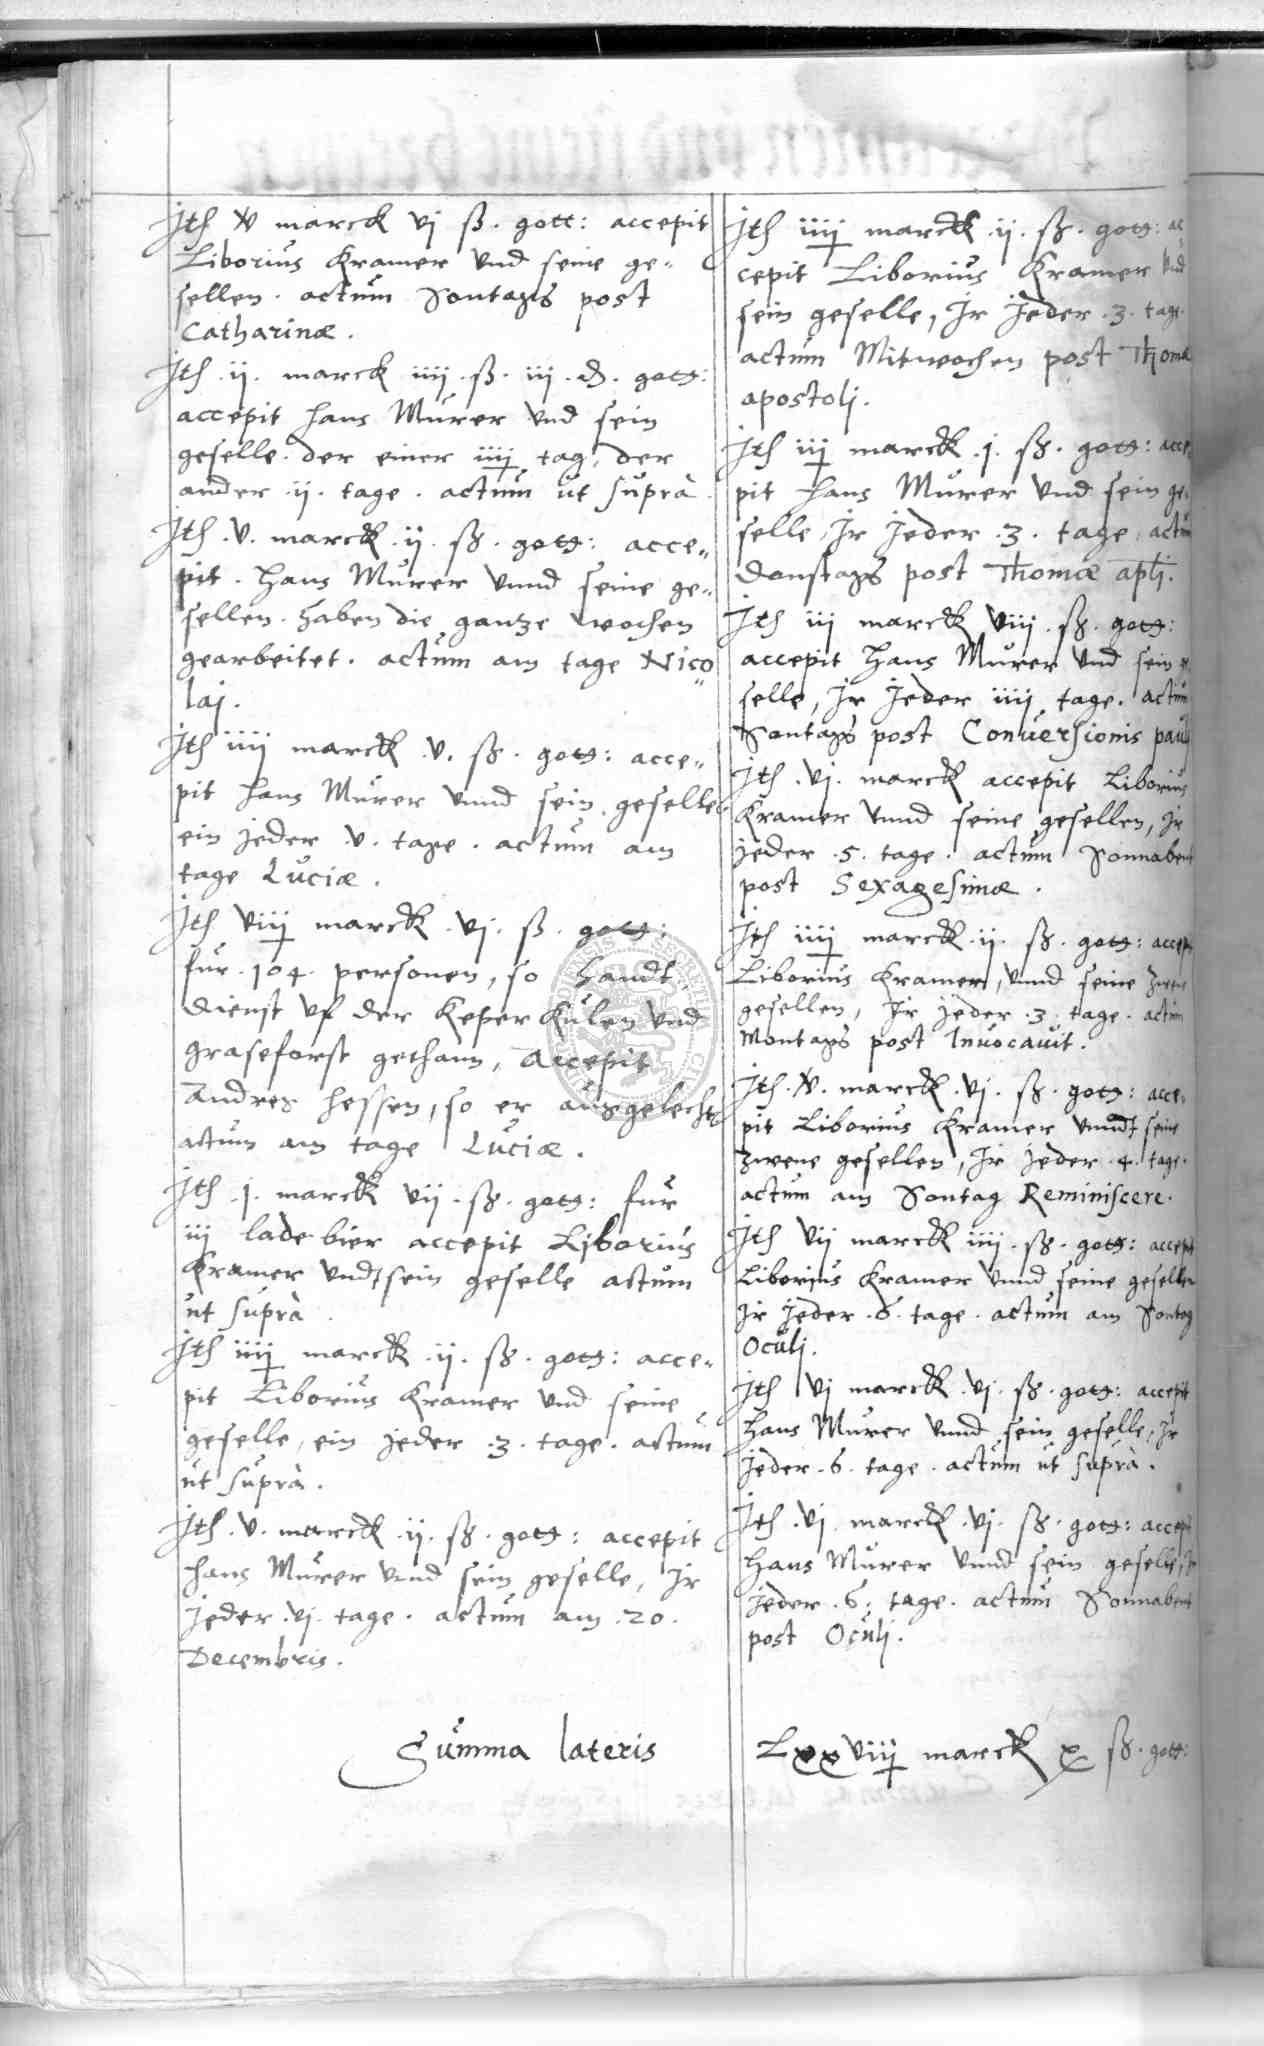 Ith v marck vj ß. gott: accepit
Liborius Kramer vnd seine ge„
sellen. actum Sontags post
Catharinæ.
Ith .ij. marck iiij .ß. iij .d. gott:
accepit Hans Murer vnd sein
geselle. der einer iiij tag, der
ander .ij. tage. actum ut suprà.
Ith .v. marck .ij. ß. gott: acce„
pit. Hans Murer vnnd seine ge„
sellen. haben die gantze wochen
gearbeitet. actum am tage Nico„
laj.
Ith iiij marck .v. ß. gott: acce„
pit Hans Murer vnnd sein geselle
ein jeder .v. tage. actum am
tage Luciæ.
Ith viij marck .vj. ß. gott:
fur .104. personen, so handt
dienst vf der Keper Kulen vnd
graseforst gethann, Accepit
Andres Hessen, so er ausgelecht
actum am tage Luciæ.
Ith .j. marck vij .ß. gott: fur
iij lade bier accepit Liborius
Kramer vndt sein geselle actum
ut suprà.
Ith iiij marck .ij. ß. gott: acce„
pit Liborius Kramer vnd seine
geselle, ein jeder .3. tage. actum
ut suprà.
Ith .v. marck .ij. ß. gott: accepit
Hans Murer vnnd sein geselle, Jr
jeder .vj. tage. actum am .20.
Decembris.
Ith iiij marck .ij. ß. gott: ac
cepit Liborius Kramer vnd
sein geselle, Jr Jeder .3. tage.
actum Mitwochen post Thomæ
apostolj.
Ith iij marck .j. ß. gott: acce„
pit Hans Murer vnd sein ge„
selle, Jr Jeder .3. tage, actum
Donstags post Thomæ apłi.
Ith iij marck viij .ß. gott:
accepit Hans Murer vnd sein ge
selle, Jr Jeder iiij tage. actum
Sontags post Conuersionis paulj
Ith .vj. marck accepit Liborius
Kramer vnnd seine gesellen, Jr
jeder .5. tage. actum Sonnabent
post Sexagesimæ.
Ith iiij marck .ij. ß. gott: accepit
Liborius Kramer, vnnd seine zwene
gesellen, Jr jeder .3. tage. actum
Montags post Inuocauit.
Ith .v. marck .vj. ß. gott: acce„
pit Liborius Kramer vnndt seine
zwene gesellen, Jr Jeder .4. tage.
actum am Sontag Reminiscere.
Ith vij marck iiij .ß. gott: accepit
Liborius Kramer vnnd seine gesellen
Jr jeder .6. tage. actum am Sontag
Oculj.
Ith vj marck .vj. ß. gott: accepit
Hans Murer vnnd sein geselle, Jr
Jeder .6. tage. actum ut suprà.
Ith .vj. marck .vj. ß. gott: accepit
Hans Murer vnnd sein geselle, Jr
jeder .6. tage. actum Sonnabent
post Oculj.
Summa lateris Lxxviij marck x ß. gott: